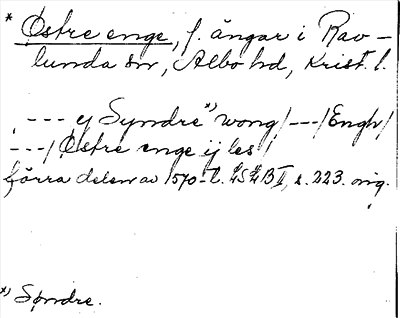 * Østre enge, f. ängar i Rav-
lunda sn, Albo hd, Krist. l.
, --- ej Syndre *) wong /---/ Engh /
---/ Østre enge ij les /
förra delen av 1570-t. LSLB I, s. 223. orig.
*) Søndre.